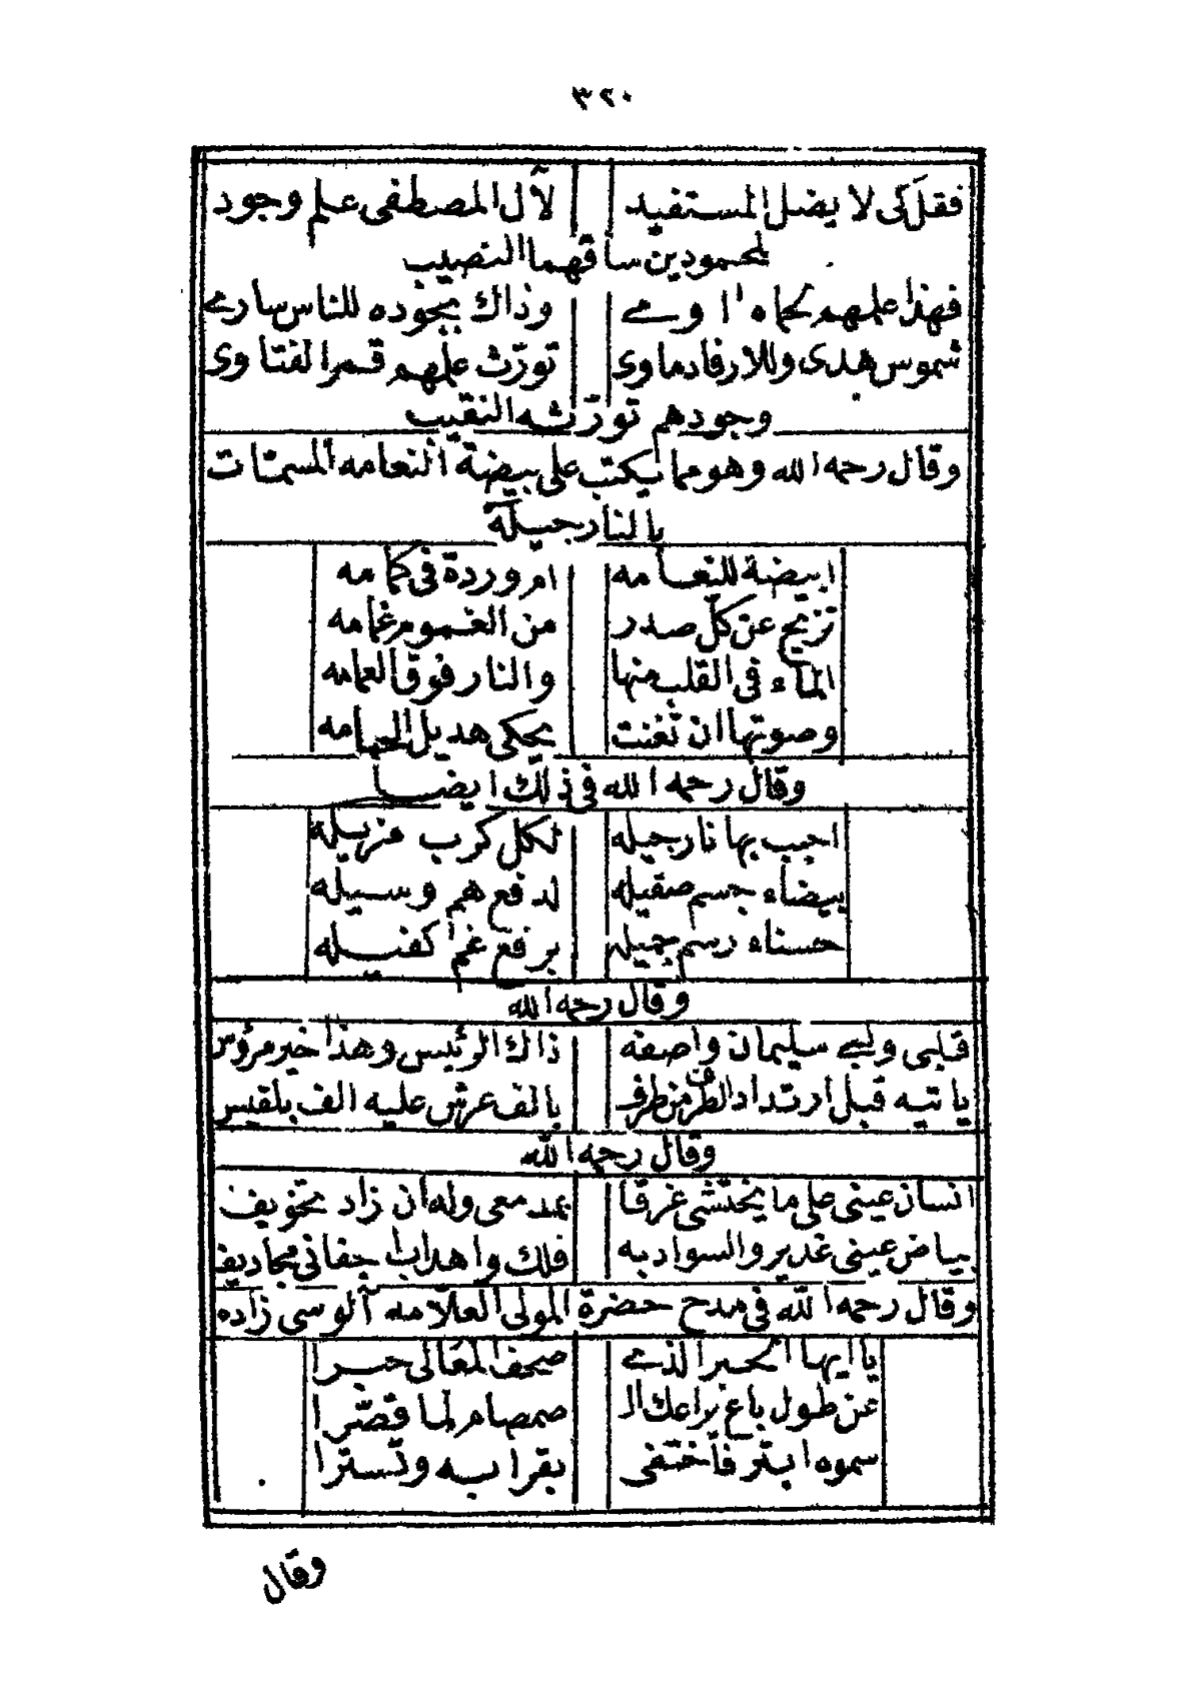 ٣٢٠
فقل كى لا يضل المستفيد لآل المصطفى علم وجود
لمحمودين ساقهما النصيب
فهذا علمهم نحماه اوے وذاك بجوده للناس سارے
شموس هدى وللارفاد ماوى تورّث علمهم قمر الفتاوى
وجودهم تورّثه النقيب
وقال رحمه الله وهو مما يكتب على بيضة النعامه المسمّات
بالنارجيلة
ابيضة للنعامه ام وردة فى كمامه
تزيح عن كلّ صدر من الغموم غمامه
الماء فى القلب منها والنار فوق العمامه
وصوتها ان تغنت يحكى هديل الحمامه
وقال رحمه الله فى ذلك ايضا
احبب بها نارجيله لكل كرب مزيله
بيضاء جسم صقيله لدفع هم وسيله
حسناء رسم جميله برفع غم كفيله
وقال رحمه الله
قلبى ولبے سليمان واصفه ذاك الرئيس وهذا خير مرؤس
ياتيه قبل ارتداد الطرف من طرف بالف عرش عليه الف بلقيس
وقال رحمه الله
انسان عينى على ما يختشى غرقا بمد معى وله ان زاد تخويف
بياض عينى غدير والسواد به فلك واهداب اجفانى مجاديف
وقال رحمه الله فى مدح حضرة المولى العلامه آلوسى زاده
يا ايها الحبر الذے صحف المعالى حبرا
عن طول باع يراعك الـ صمصام لما قصّرا
سموه ابتر فاختفى بقرابه وتسترا
وقال